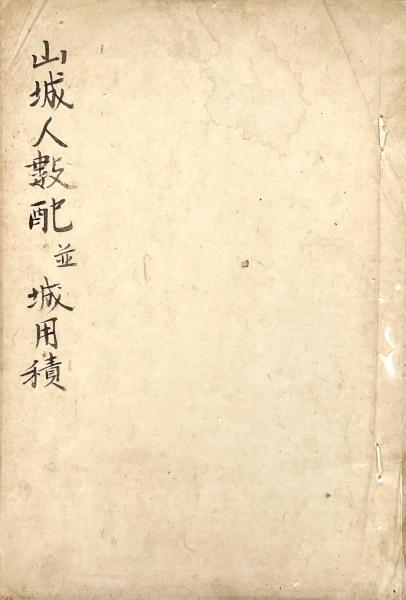 山城人數配並城用積